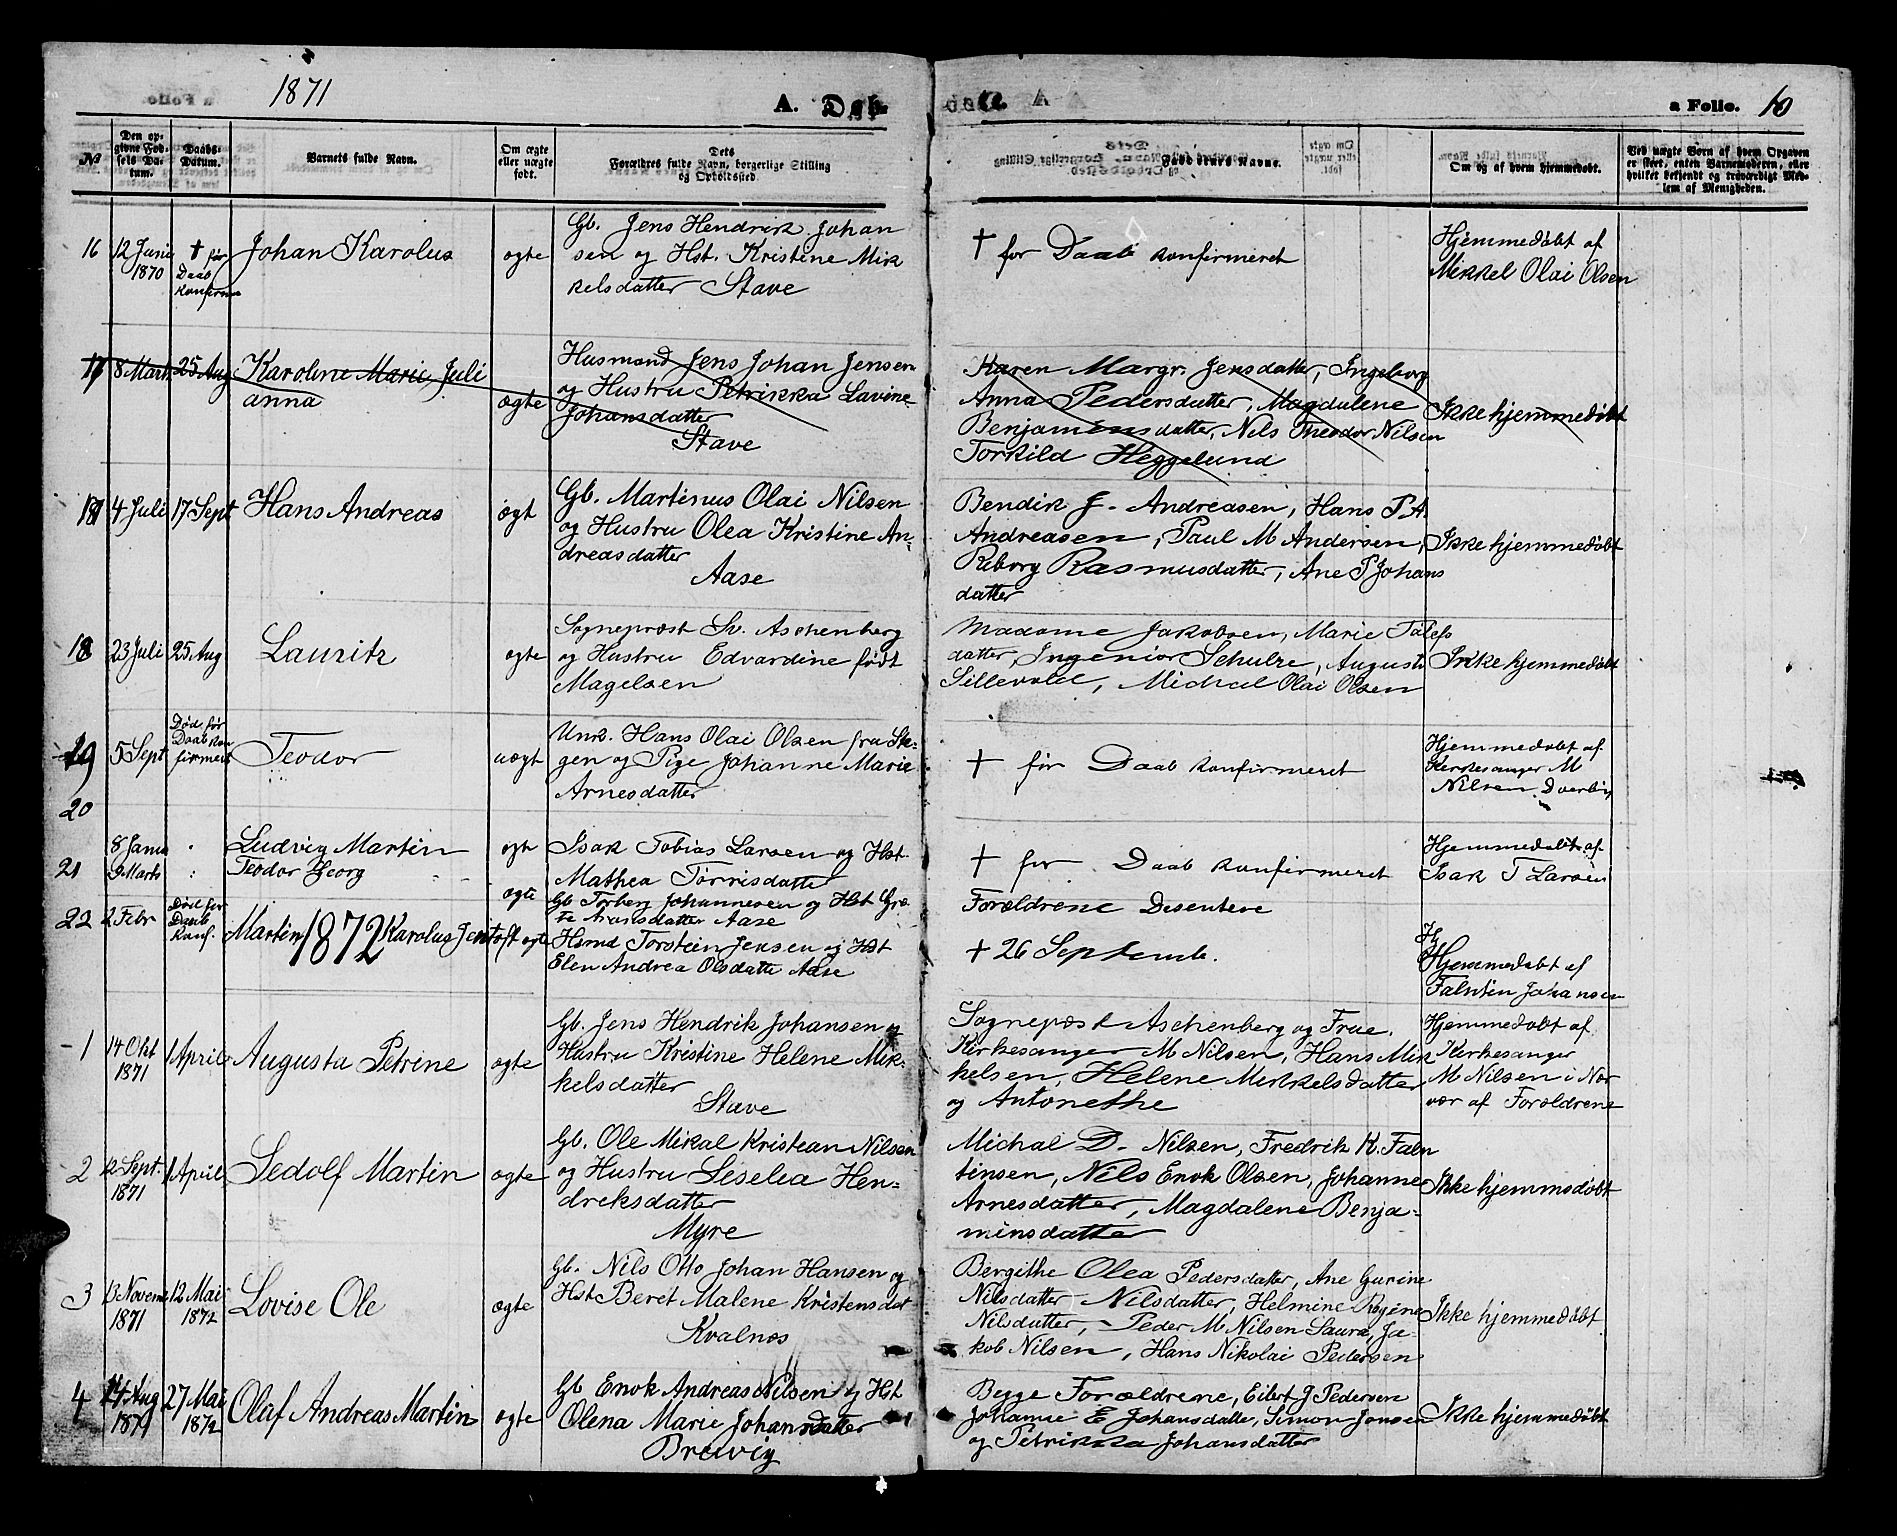 1871
A. Døb.
a Folio. 10
№
Den opgivne Fødsels Datum.
Daabs-Datum.
Barnets fulde Navn.
Om ægte eller uægte født.
Dets Forældres fulde Navn, borgerlige Stilling og Opholdssted.
Faddernes Navne.
Om og af hvem hjemmedøbt.
Ved uægte Børn af hvem Opgaven er skeet, enten Barnemoderen, eller hvilket bekjendt og troværdigt Medlem af Menigheden.
16
12 Juni
1870
† før
Daab
konfirm
Johan Karolus
ægte
Gb. Jens Hendrik Johan
sen og Hst. Kristine Mik
kelsdatter Stave
† før Daab konfirmeret
Hjemmedøbt af
Mikkel Olai Olsen
17
8 Marts
25 Aug
Karoline Marie Juli
anna
ægte
Husmand Jens Johan Jensen
og Hustru Petrikka Lavine
Johansdatter
Stave
Karen Margr. Jensdatter, Ingeborg
Anna Pedersdatter, Magdalene
Benjamensdatter, Nils Theodor Nilsen
Torkild Heggelund
Ikke hjemmedøbt
4 Juli
17 Sept
Hans Andreas
ægt
Gb. Martinus Olai Nilsen
og Hustru Olea Kristine An-
dreasdatter
Aase
Bendik J. Andreasen, Hans P.A.
Andreasen, Paul M Andersen,
Reborg Rasmusdatter, Ane P Johans
datter
Ikke hjemmedøbt
18
23 Juli
25 Aug
Lauritz
ægte
Sognepræst Sv. Aschenberg
og Hustru Edvardine født
Magelsen
Madame Jakobsen, Marie
datter, Ingeniør Schulze, August
Sillevold, Michael Olai Olsen
Ikke hjemmedøbt
19
5 Sept
Død før
Daab kon
firmert
Teodor
uægt
Unk. Hans Olai Olsen fra Ste-
gen og Pige Johanne Marie
Arnesdatter
† før Daab konfirmeret
Hjemmedøbt af
Kirkesanger M
Nilsen Dverbirg
20
8 Janu
Ludvig Martin
ægte
Isak Tobias Larsen og Hst.
Mathea Tørrisdatter
† før Daab konfirmeret
Hjemmedøbt af
Isak T Larsen
21
9 Marts
Teodor Georg
ægte
Gb Torberg Johannesen og Hst Gre
te Aronsdatter Aase
Forældrene Desentere
22
2 Febr
Død før
Daab
Konf.
Martin Karolus Jentoft
ægte
Hsmd Torstein Jensen og Hst
Elen Andrea Olsdatter Aase
† 26 Septemb.
Hj
Hjemmedøbt af
Falntin Johansen
1872
1
14 Okt
1871
1 April
Augusta Petrine
ægte
Gb. Jens Hendrik Johansen og
Hustru Kristine Helene Mik-
kelsdatter
Stave
Sognepræst Aschenberg og Frue.
Kirkesanger M Nilsen, Hans Mik
kelsen, Helene Mikkelsdatter
og Antonethe
Hjemmedøbt af
Kirkesanger
M Nilsen i Nær
vær af Forældrene
2
12 Sept.
1871
1 April
Sedolf Martin
ægte
Gb. Ole Mikal Kristean Nilsen
og Hustru Seselia Hen-
dreksdatter
Myre
Michal D. Nilsen, Fredrik K. Faln
tinsen, Nils Enok Olsen, Johanne
Arnesdatter, Magdalene Benja-
minsdatter
Ikke hjemmsdøbt
3
13 Novem
1871
12 Mai
1872
Lovise Ole
ægte
Gb. Nils Otto Johan Hansen og
Hst Beret Malene Kristensdat
Kvalnæs
Bergithe Olea Pedersdatter, Ane Gurine
Nilsdatter Nilsdatter, Helmine Regine
Nilsdatter, Peder M Nilsen Saura, Ja-
kob Nilsen, Hans Nikolai Pedersen
Ikke hjemmedøbt
4
14 Aug
1871
27 Mai
1872
Olaf Andreas Martin
ægte
Gb Enok Andreas Nilsen og Hst
Olena Marie Johansdatter
Breivig
Begge Forældrene, Eilert J Pedersen
Johanne E Johansdatter, Simon Jonsen
og Petrikka Johansdatter
Ikke hjemmedøbt